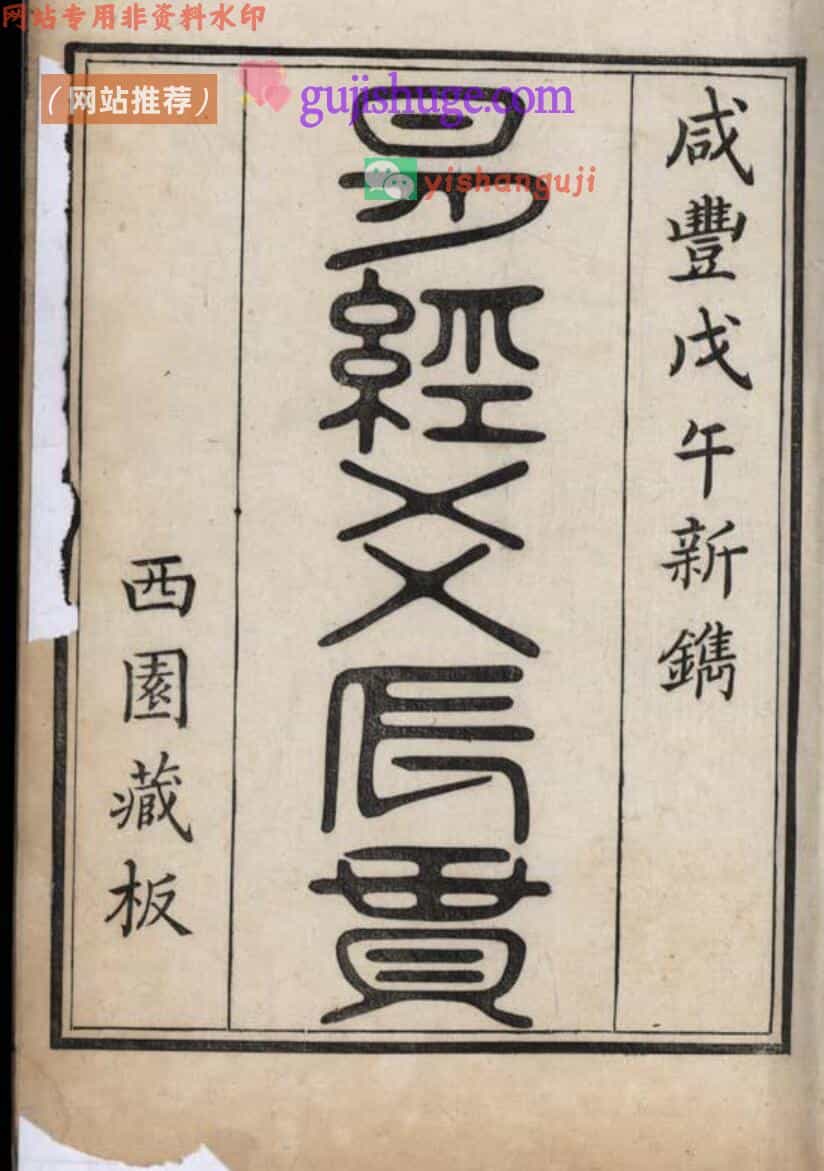 网站专用非资料水印
（网站推荐）
gujishuge.com
yishanguji
咸豐戊午新鐫
易經爻辰貫
西園藏板